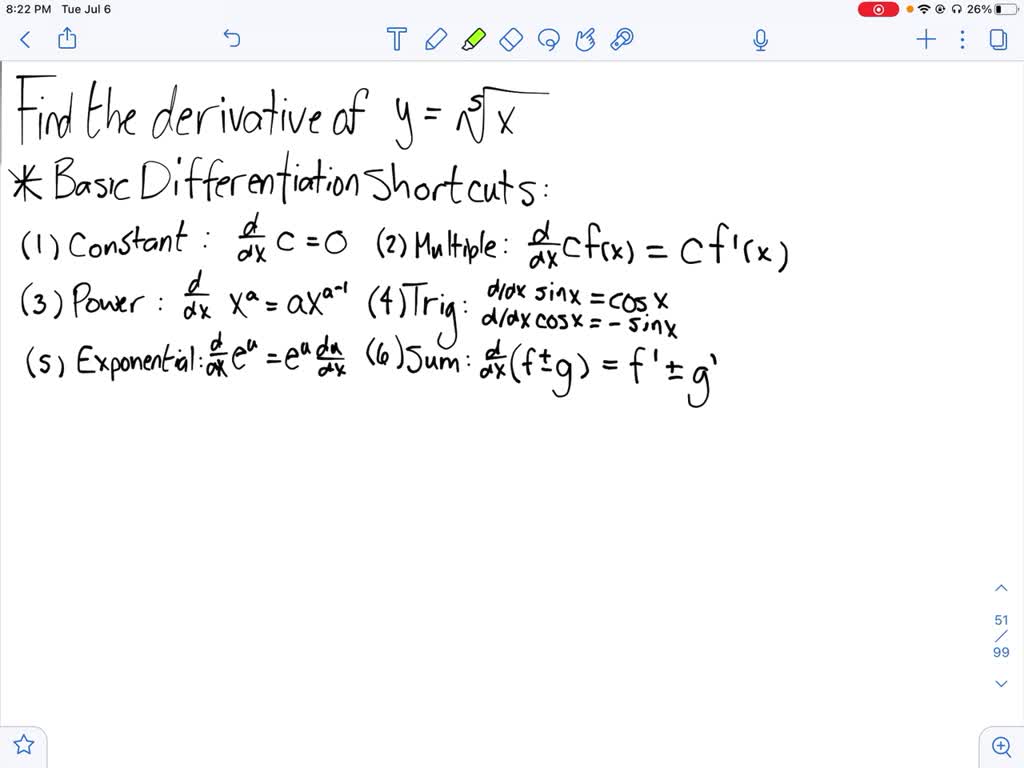 8:22 PM Tue Jul 6 26%
Find the derivative of y = ⁵√x
* Basic Differentiation Shortcuts:
(1) Constant : d/dx c = 0 (2) Multiple: d/dx cf(x) = cf'(x)
(3) Power : d/dx xᵃ = axᵃ⁻¹ (4) Trig: d/dx sinx = cosx
d/dx cosx = - sinx
(5) Exponential: d/dx eᵘ = eᵘ du/dx (6) Sum: d/dx (f ± g) = f' ± g'
51
/
99